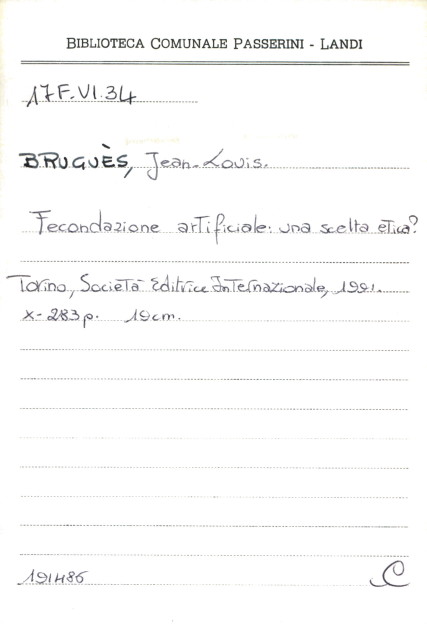 BIBLIOTECA COMUNALE PASSERINI - LANDI
17F.VI.34
BRUGUÈS, Jean-Louis.
Fecondazione artificiale: una scelta etica?
Torino, Società Editrice Internazionale, 1991.
X-283p. 19cm.
191486
C